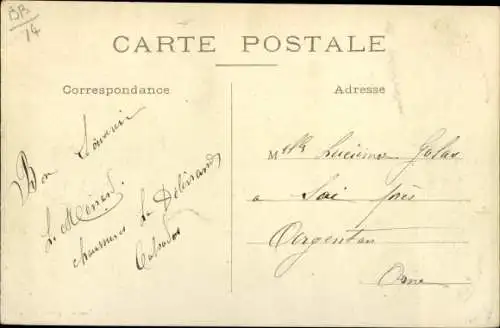 BB
14
CARTE POSTALE
Correspondance
Adresse
Bon Souvenir
L. Ménard
chaussures La Délivrande
Calvados
Mlle Lucienne
à Sai près
Argentan
Orne